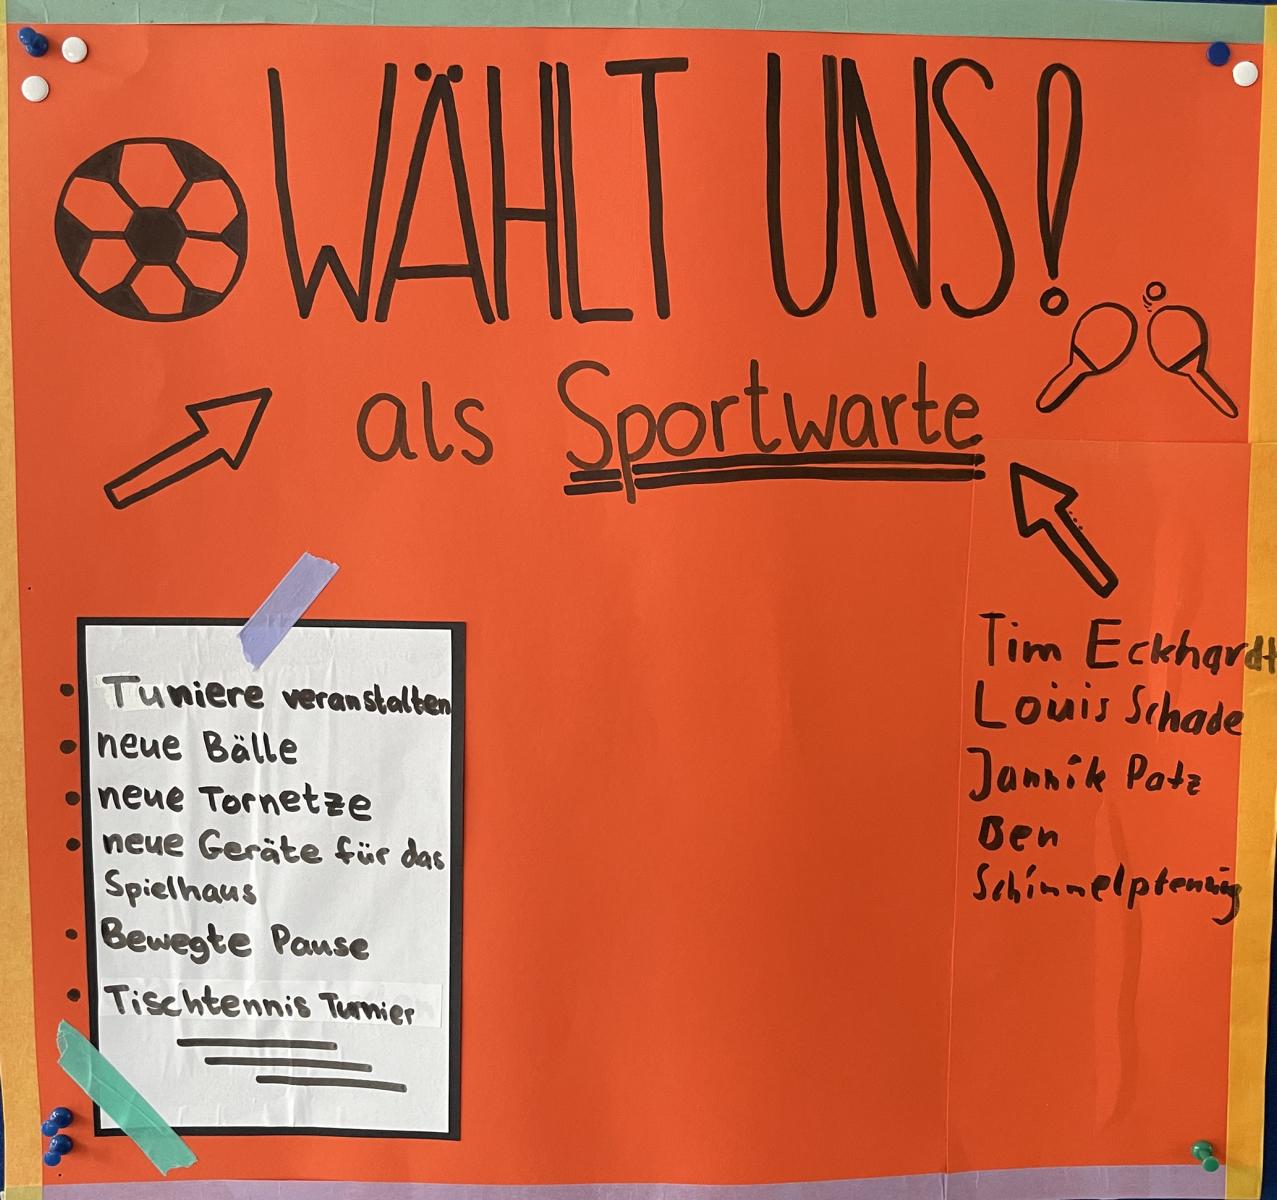 WÄHLT UNS!
als Sportwarte
• Tuniere veranstalten
• neue Bälle
• neue Tornetze
• neue Geräte für das
Spielhaus
• Bewegte Pause
• Tischtennis Turnier
Tim Eckhardt
Louis Schade
Jannik Patz
Ben
Schimmelpfennig